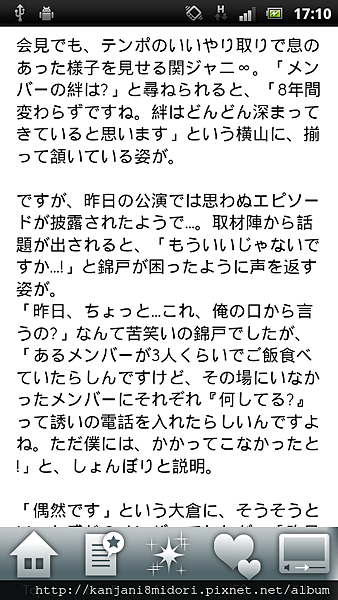 H
17:10
会見でも、テンポのいいやり取りで息の
あった様子を見せる関ジャニ∞。「メン
バーの絆は?」と尋ねられると、「8年間
変わらずですね。絆はどんどん深まって
きていると思います」という横山に、揃
って頷いている姿が。
ですが、昨日の公演では思わぬエピソー
ドが披露されたようで…。取材陣から話
題が出されると、「もういいじゃないで
すか…!」と錦戸が困ったように声を返す
姿が。
「昨日、ちょっと…これ、俺の口から言
うの?」なんて苦笑いの錦戸でしたが、
「あるメンバーが3人くらいでご飯食べ
ていたらしんですけど、その場にいなか
ったメンバーにそれぞれ『何してる?』
って誘いの電話を入れたらしいんですよ
ね。ただ僕には、かかってこなかったと
!」と、しょんぼりと説明。
「偶然です」という大倉に、そうそうと
http://kanjani8midori.pixnet.net/album